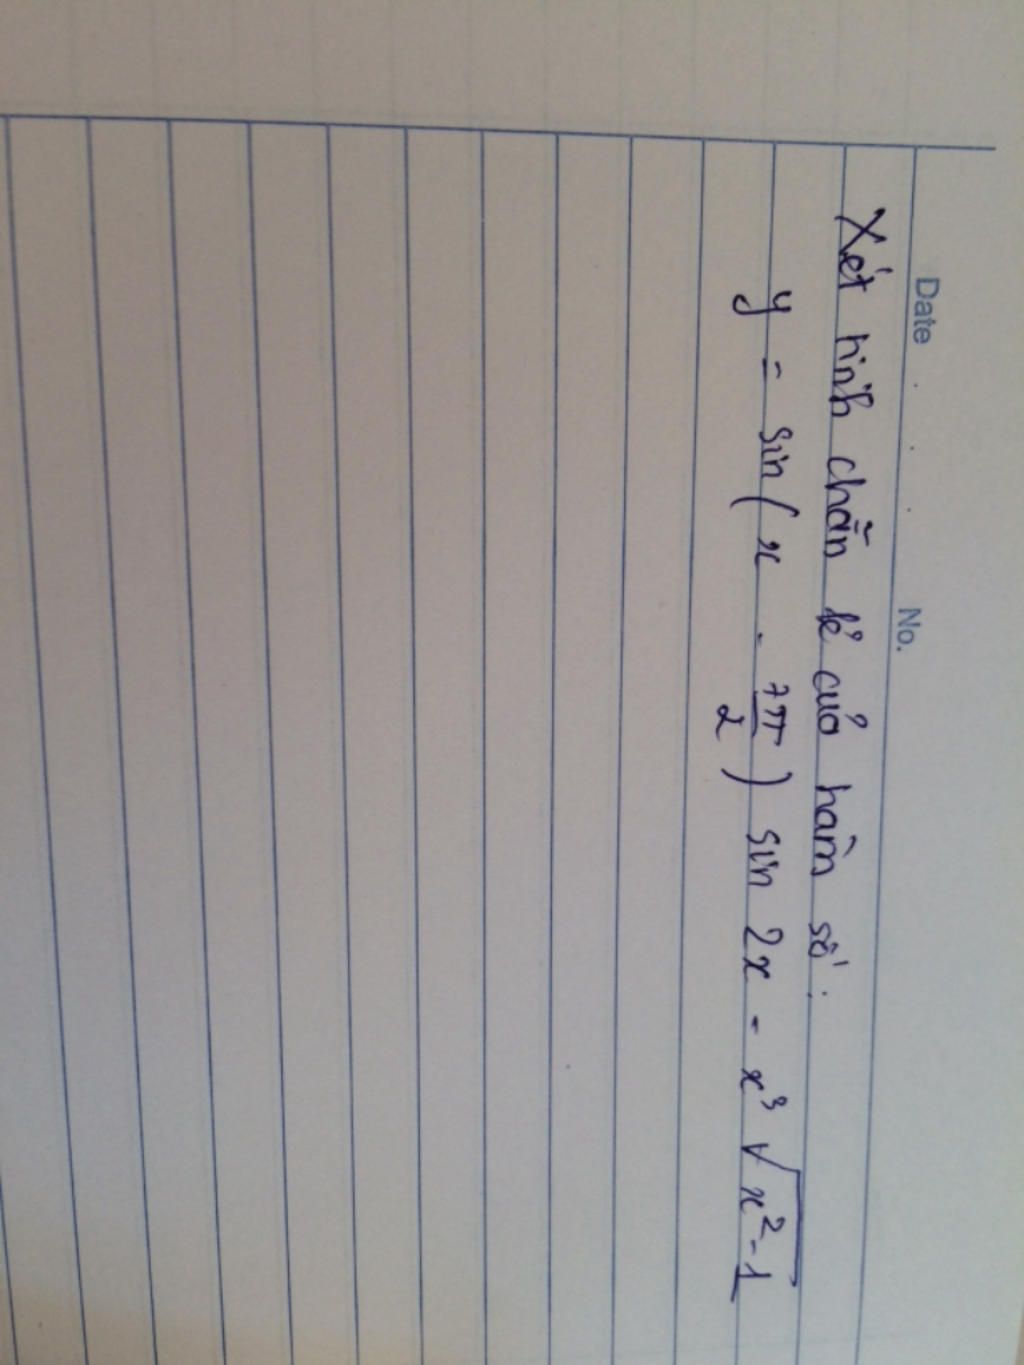 Date . . . No.
Xét tính chẵn lẻ của hàm số:
y = sin(x - 7π/2) sin 2x - x³√(x²-1)